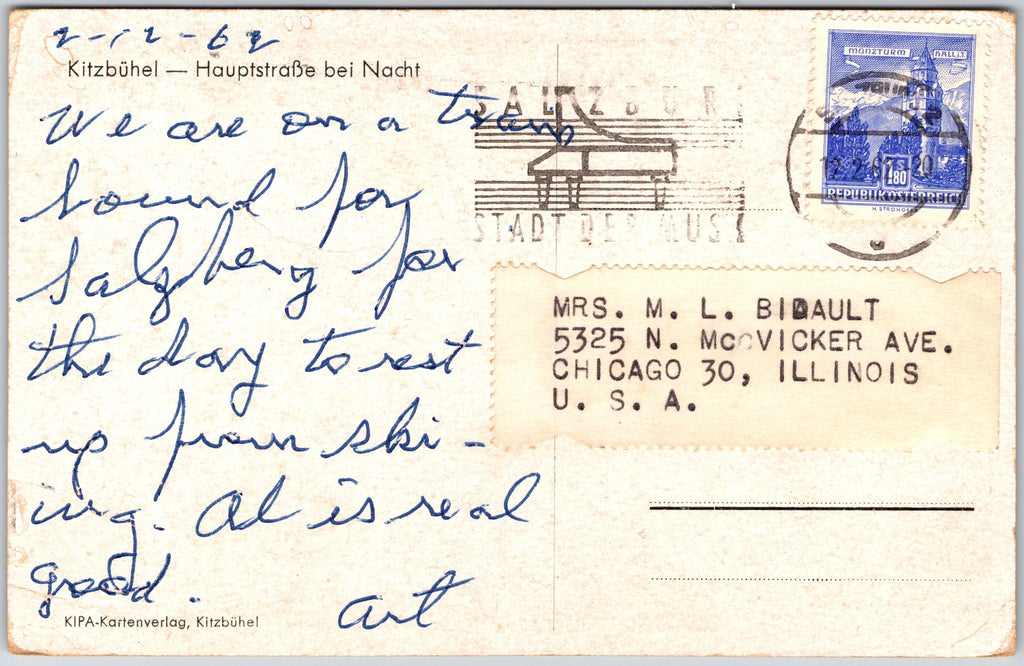 2-12-62
Kitzbühel — Hauptstraße bei Nacht
We are on a train
bound for
Salzberg for
the day to rest
up from ski-
ing. Al is real
good.
Art
KIPA-Kartenverlag, Kitzbühel
SALZBURG
STADT DER MUSIK
MÜNZTURM HALL i.T.
12.2.62-20
S 1.80
REPUBLIK ÖSTERREICH
H. STROHOFER
MRS. M. L. BIDAULT
5325 N. McVICKER AVE.
CHICAGO 30, ILLINOIS
U. S. A.